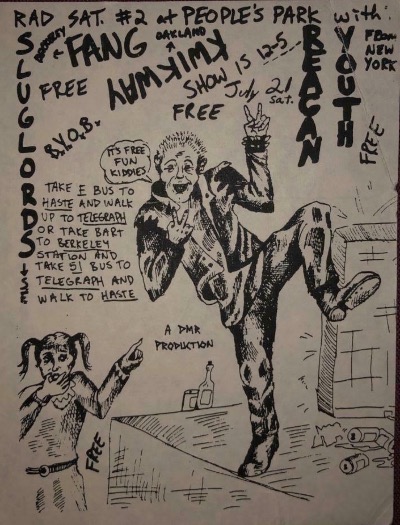 RAD SAT. #2 at PEOPLE'S PARK with:
SLUGLORDS
BERKELEY
FANG
OAKLAND
KWIKWAY
REAGAN YOUTH
FROM NEW YORK
FREE
SHOW IS 12-5
July 21 sat.
FREE
FREE
B.Y.O.B.
IT'S FREE
FUN
KIDDIES
TAKE F BUS TO
HASTE AND WALK
UP TO TELEGRAPH
OR TAKE BART
TO BERKELEY
STATION AND
TAKE 51 BUS TO
TELEGRAPH AND
WALK TO HASTE
A DMR
PRODUCTION
FREE